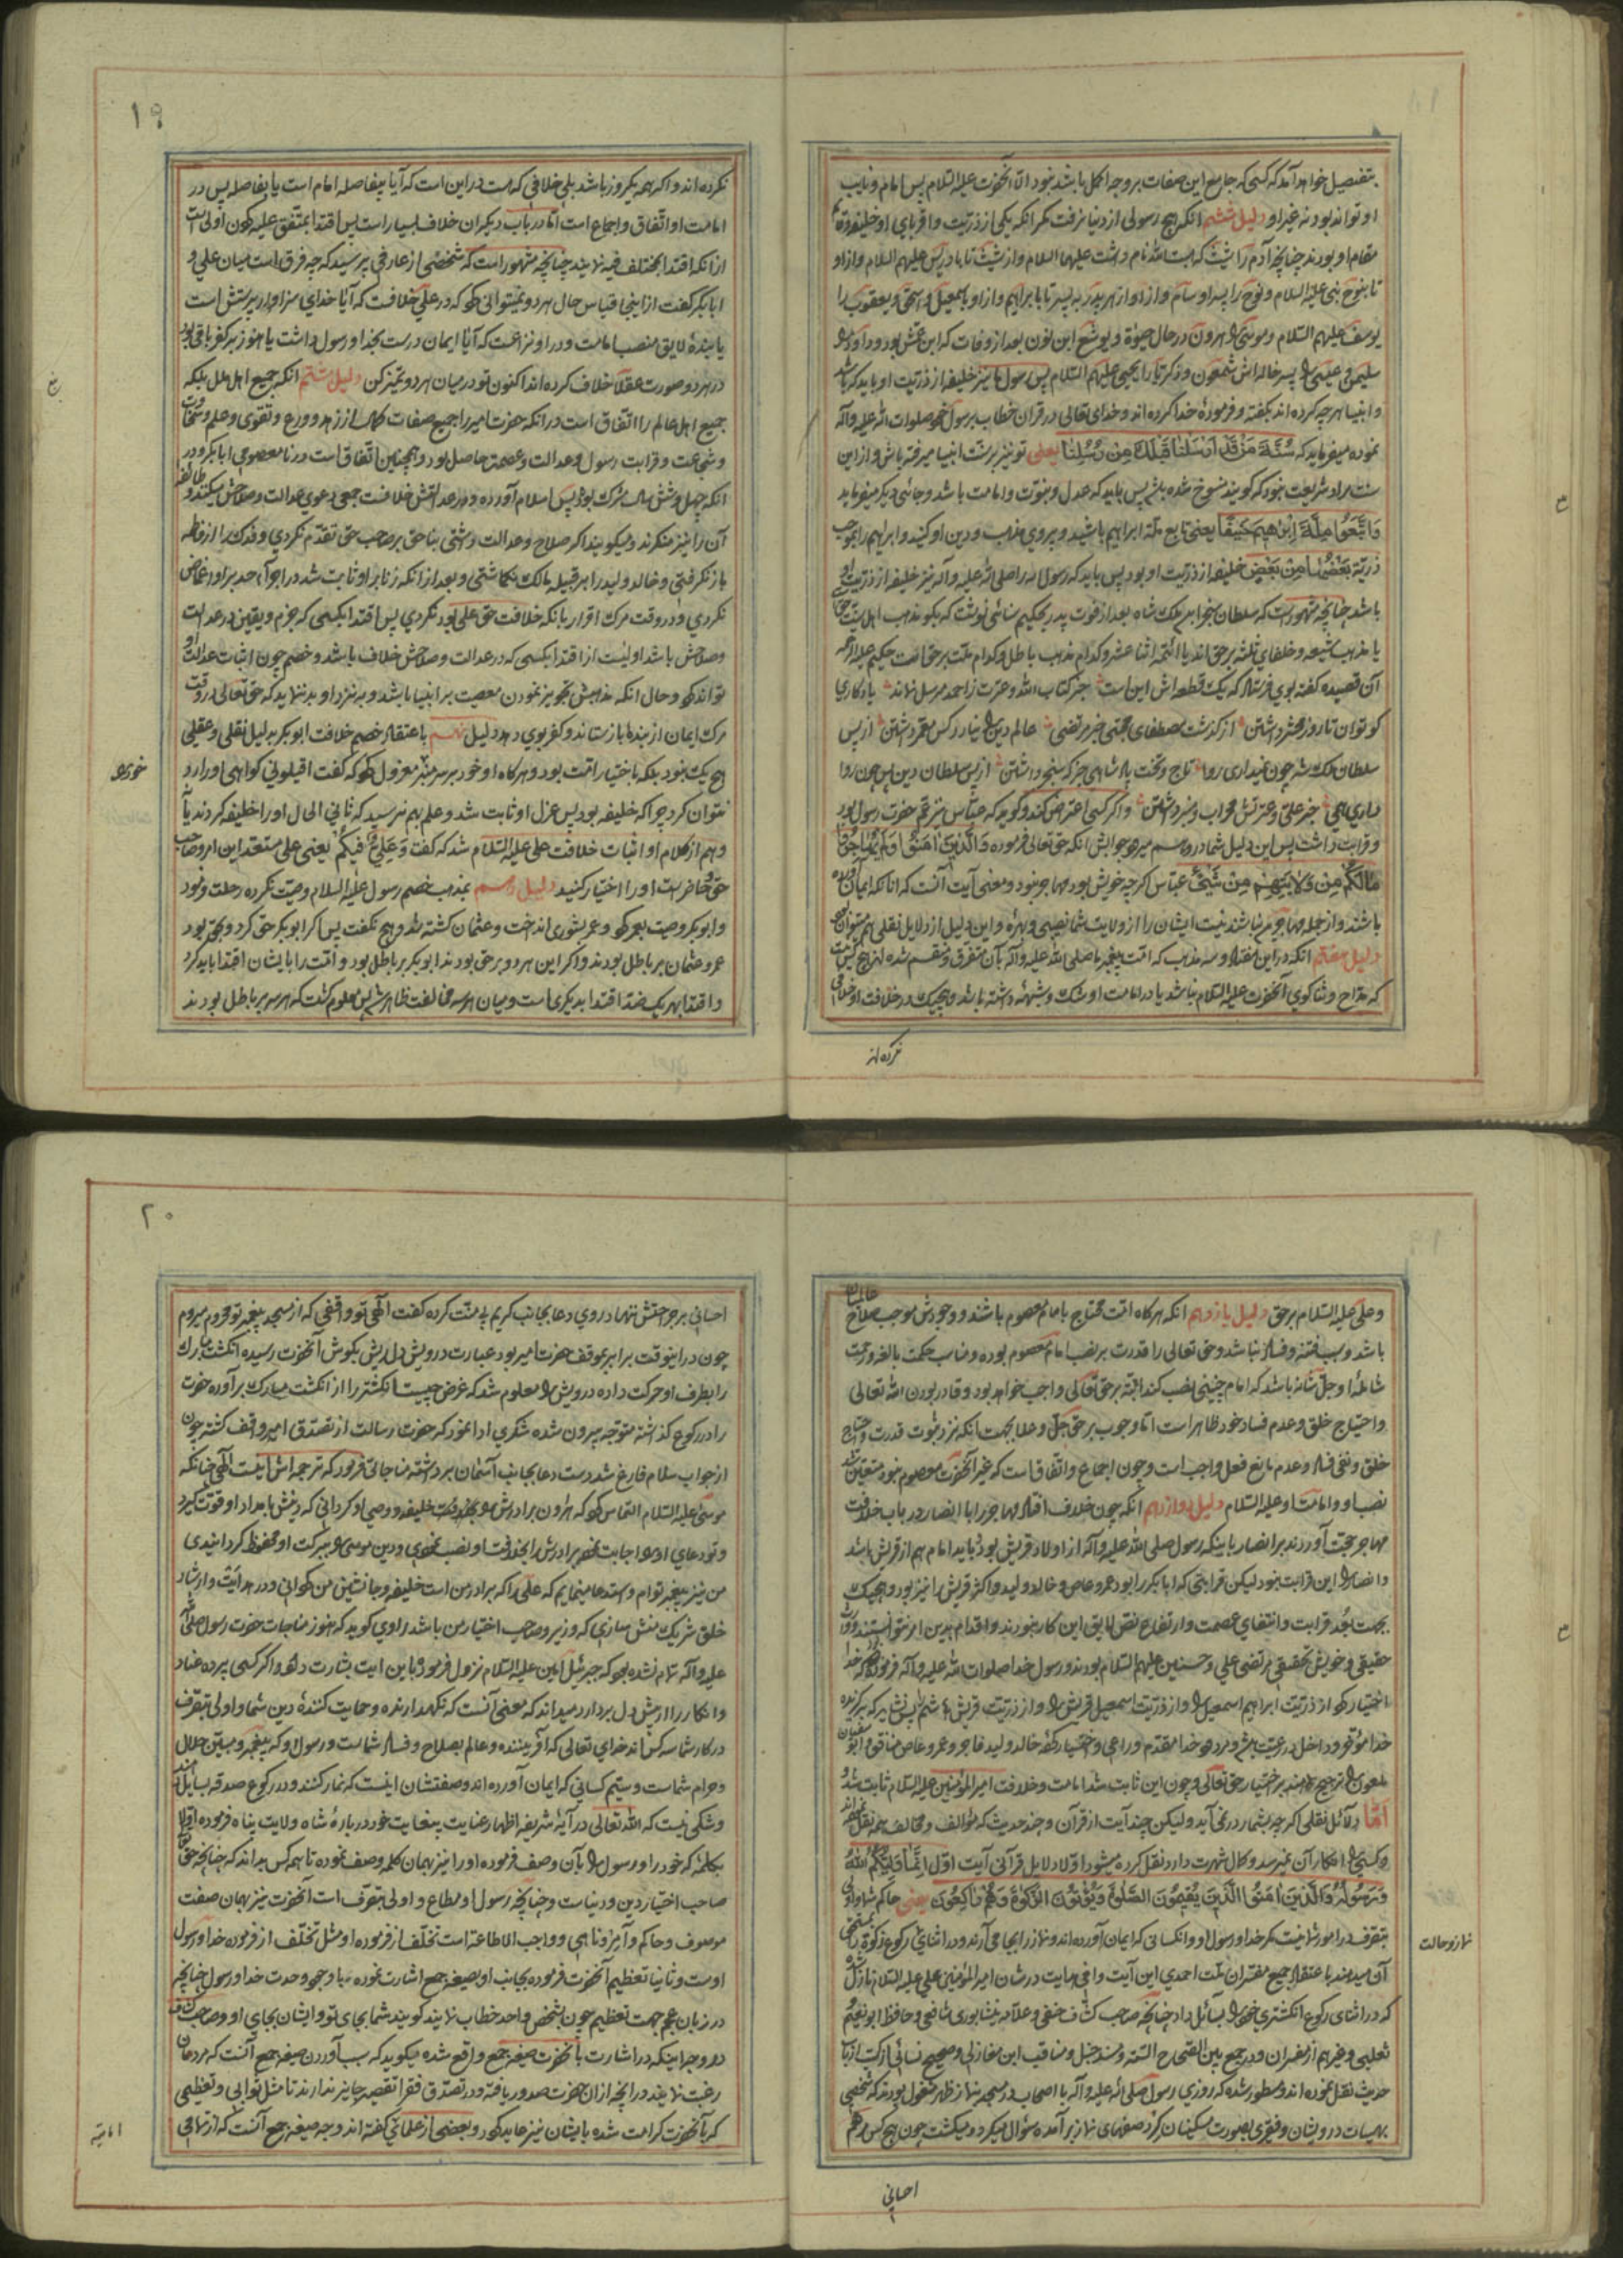 بتفصیل خواهد آمد که کسی که جامع این صفات بروجه اکمل باشد نبود الا آنحضرت علیه السلام پس امام و نایب
او تواند بود نه غیر او دلیل ششم آنکه هیچ رسولی از دنیا نرفت مگر آنکه یکی از ذریت و اقربای او خلیفه و قایم
مقام او بودند چنانچه آدم را شیث که هبت الله نام داشت علیهما السلام و از شیث تا بادریس علیهم السلام و از او
تا بنوح نبی علیه السلام و نوح را پسر او سام و از او از هر پدر به پسر تا بابراهیم و از او باسمعیل و اسحق و یعقوب را
یوسف علیهم السلام و موسی را هرون در حال حیوة و یوشع ابن نون بعد از وفات که ابن عمش بود و داود را
سلیمن و عیسی را پسر خاله اش شمعون و ذکریا را یحیی علیهم السلام پس رسول ما نیز خلیفه از ذریت او باید که باشد
و انبیا هر چه کرده اند بگفته و فرمودهٔ خدا کرده اند و خدای تعالی در قران خطاب برسول خود صلوات الله علیه و آله
نموده میفرماید که سُنَّةَ مَنْ قَدْ اَرْسَلْنا قَبْلَكَ مِنْ رُسُلِنا یعنی تو نیز بر سنت انبیا میرفته باش و از این
سنت مراد شریعت نبود که گویند منسوخ شده باشد پس باید که عدل و نبوت و امامت باشد و جائی دیگر میفرماید
وَاتَّبِعُوا مِلَّةَ اِبْرٰهِیمَ حَنیفًا یعنی تابع ملة ابراهیم باشید و پیروی مذهب و دین او کنید و ابراهیم را بموجب
ذُرِّیَّةً بَعْضُها مِنْ بَعْضٍ خلیفه از ذریت او بود پس باید که رسول ما را صلی الله علیه و آله نیز خلیفه از ذریت او
باشد چنانچه مشهور است که سلطان سنجر ابن ملک شاه بعد از فوت پدر بحکیم سنائی نوشت که بگو مذهب اهل سنت حق
یا مذهب شیعه و خلفای ثلثه بر حق اند یا ائمه اثنا عشر و کدام مذهب باطل و کدام ملت بر حق است حکیم علیه الرحمه
آن قصیده گفته بوی فرستاد که یک قطعه اش این است جز کتاب الله و عترت ز احمد مرسل نماند یادکاری
کو توان تا روز محشر داشتن از گذشت مصطفای مجتبی جز مرتضی عالم دین را نیارد کس معمر داشتن از پس
سلطان ملک شه چون نمیداری روا تاج و تخت پادشاهی جز که سنجر داشتن از پس سلطان دین پس چون روا
داری همی جز علی و عترتش محراب و منبر داشتن و اگر کسی اعتراض کند و گوید که عباس نیز عم حضرت رسول بود
و قرابت داشت پس این دلیل شما در و رسم میرود جوابش آنکه حق تعالی فرموده وَالَّذینَ اٰمَنُوا وَلَمْ یُهاجِرُوا
مالَکُمْ مِنْ وَلایَتِهِمْ مِنْ شَیْءٍ عباس گرچه خویش بود مهاجر نبود و معنی آیت آنست که آنانکه ایمان آورده
باشند و از جمله مهاجر نباشند نیست ایشان را از ولایت شما نصیبی و بهره و این دلیل از دلایل نقلی هم میتواند بود
دلیل هفتم آنکه در این هفتاد و سه مذهب که امت پیغمبر ما صلی الله علیه و آله بآن متفرق و منقسم شده اند هیچ کس نیست
که مداح و ثناگوی آنحضرت علیه السلام نباشد یا در امامت او شک و شبهه داشته باشد و هیچیک در خلافت او خلافی
نکرده اند
۱۹
نکرده اند و اگر همه یکروز باشد بلی خلافی که هست در این است که آیا بیفاصله امام است یا بفاصله پس در
امامت او اتفاق و اجماع است اما در باب دیگران خلاف بسیار است پس اقتدا بمتفق علیه کردن اولی است
از آنکه اقتدا بمختلف فیه نمایند چنانچه مشهور است که شخصی از عارفی پرسید که چه فرق است میان علی و
ابابکر گفت از اینجا قیاس حال هر دو میتوانی کرد که در علی خلافست که آیا خدای سزاوار پرستش است
یا بندهٔ لایق منصب امامت و در او نزاعست که آیا ایمان درست بخدا و رسول داشت یا هنوز بر کفر باقی بود
در هر دو صورت عقلا خلاف کرده اند اکنون تو در میان هر دو تمیز کن دلیل هشتم آنکه جمیع اهل ملل بلکه
جمیع اهل عالم را اتفاق است در آنکه حضرت امیر را جمیع صفات کمال از زهد و ورع و تقوی و علم و سخاوت
و شجاعت و قرابت رسول و عدالت و عصمت حاصل بود و همچنین اتفاق است در نامعصومی ابابکر و در
آنکه چهل و شش سال مشرک بود پس اسلام آورده و در عدالتش خلافست جمعی دعوی عدالت و صلاحش میکنند و طائفه
آن را نیز منکرند و میگویند اگر صلاح و عدالت داشتی بناحق بر صاحب حق تقدم نکردی و فدک را از فاطمه
باز نگرفتی و خالد ولید را بر قبیله مالک نگماشتی و بعد از آنکه زنا بر او ثابت شد در اجرای حد بر او اغماض
نکردی و در وقت مرگ اقرار بانکه خلافت حق علی بود نکردی پس اقتدا بکسی که جزم و یقین در عدالت
و صلاحش باشد اولیست از اقتدا بکسی که در عدالت و صلاحش خلاف باشد و خصم چون اثبات عدالت او
تواند کرد و حال آنکه مذهبش تجویز نمودن معصیت بر انبیا باشد و به نزد او بد ننماید که حق تعالی در وقت
مرگ ایمان از بندها باز ستاند و کفر بوی دهد دلیل نهم باعتقاد خصم خلافت ابوبکر بدلیل نقلی و عقلی
هیچ یک نبود بلکه باختیار امت بود و هرگاه او خود بر سر منبر معزول کرد که گفت اقیلونی گواهی او را رد
نتوان کرد چرا که خلیفه بود پس عزل او ثابت شد و علم بهم نرسید که ثانی الحال او را خلیفه کردند یا
و هم از کلام او اثبات خلافت علی علیه السلام شد که گفت وَعَلِیٌّ فیکُمْ یعنی علی مستعد این امر و صاحب
حق و حاضر است او را اختیار کنید دلیل دهم بمذهب خصم رسول علیه السلام وصیت نکرده رحلت نمود
و ابوبکر وصیت بعمر کرد و عمر بشوری انداخت و عثمان کشته شد و هیچ نگفت پس اگر ابوبکر حق کرد و بحق بود
عمر و عثمان بر باطل بودند و اگر این هر دو بر حق بودند ابوبکر بر باطل بود و امت را بایشان اقتدا باید کرد
و اقتدا بهر یک ضد اقتدا بدیگری است و میان هر سه مخالفت ظاهر شد پس معلوم گشت که هر سه بر باطل بودند
و علی علیه السلام بر حق دلیل یازدهم آنکه هرگاه امت محتاج بامام معصوم باشند و وجودش موجب صلاح عالمیان
باشد و سبب فتنه و فساد نباشد و حق تعالی را قدرت بر نصب امام معصوم بوده و مناسب حکمت بالغه و رحمت
شاملهٔ او جل شانه باشد که امام چنینی نصب کند البته بر حق تعالی واجب خواهد بود و قادر بودن الله تعالی
و احتیاج خلق و عدم فساد خود ظاهر است اما وجوب بر حق جل و علا بجهت آنکه نزد ثبوت قدرت و احتیاج
خلق و نفی فساد و عدم مانع فعل واجب است و چون اجماع و اتفاق است که غیر آنحضرت معصوم نبود متعین شد
نصب او و امامت او علیه السلام دلیل دوازدهم آنکه چون خلاف افتاد مهاجر را با انصار در باب خلافت
مهاجر حجت آوردند بر انصار باینکه رسول صلی الله علیه و آله از اولاد قریش بود باید امام هم از قریش باشد
و انصار را این قرابت نبود لیکن قرابتی که ابابکر را بود عمرو عاص و خالد ولید و اکثر قریش را نیز بود و هیچیک
بجهت بُعد قرابت و انتفای عصمت و ارتفاع نص لایق این کار نبودند و اقدام بدین امر نتوانستند و وارث
حقیقی و خویش تحقیقی مرتضی علی و حسنین علیهم السلام بودند و رسول خدا صلوات الله علیه و آله فرموده که خدا
اختیار کرد از ذریت ابراهیم اسمعیل را و از ذریت اسمعیل قریش را و از ذریت قریش هاشم را پس نشاید که برگزیده
خدا مؤخر و داخل در رعیت باشد و مردود خدا مقدم و راعی و اختیار کردهٔ خالد ولید فاجر و عمرو عاص منافق و ابوسفیان
ملعون را ترجیح دهند بر اختیار حق تعالی و چون این ثابت شد امامت و خلافت امیر المؤمنین علیه السلام ثابت شد
اَمّا دلائل نقلی اگر چه بشمار در نمی آید و لیکن چند آیت از قرآن و چند حدیث که مؤالف و مخالف همه نقل نموده اند
و کسی را انکار آن نمیرسد و کمال شهرت دارد نقل کرده میشود اولا دلایل قرآنی آیت اول اِنَّما وَلِیُّکُمُ اللهُ
وَرَسُولُهُ وَالَّذینَ اٰمَنُوا الَّذینَ یُقیمُونَ الصَّلٰوةَ وَیُؤْتُونَ الزَّکٰوةَ وَهُمْ راکِعُونَ یعنی حاکم شما و اولی
بتصرف در امور شما نیست مگر خدا و رسول او و آنکسانی که ایمان آورده اند و نماز را بجا می آرند و در اثنای رکوع زکوة بمستحق
آن میدهند باعتقاد جمیع مفسران ملت احمدی این آیت وافی هدایت در شان امیر المؤمنین علی علیه السلام نازل شده
که در اثنای رکوع انگشتری خود را بسائل داد چنانچه صاحب کشاف حنفی و علامه نیشابوری شافعی و حافظ ابونعیم
ثعلبی و غیرهم از مفسران و در جمع بین الصحاح السته و مسند حنبل و مناقب ابن مغازلی و صحیح نسائی از کتب ارباب
حدیث نقل نموده اند و مسطور شده که روزی رسول صلی الله علیه و آله با اصحاب در مسجد بنماز ظهر مشغول بودند که شخصی
بهیئات درویشان و فقیری بصورت مسکینان گرد صفهای نماز برآمده سؤال میکرد و میگشت چون هیچ کس مرهم
احسانی
۲۰
احسانی بر جراحتش ننهاد روی دعا بجانب کریم بی منت کرده گفت الهی تو واقفی که از مسجد پیغمبر تو محروم میروم
چون در اینوقت برابر بموقف حضرت امیر بود عبارت درویش دل ریش بگوش آنحضرت رسیده انگشت مبارک
را بطرف او حرکت داده درویش را معلوم شد که غرض چیست انگشتر را از انگشت مبارک برآورده حضرت
را در رکوع گذاشته متوجه بیرون شده شکری ادا نمود که حضرت رسالت از تصدق امیر واقف گشته چون
از جواب سلام فارغ شد دست دعا بجانب آسمان برداشته مناجاتی فرمود که ترجمه اش اینست الهی چنانکه
موسی علیه السلام التماس کرد که هرون برادرش را بخلافت خلیفه و وصی او گردانی که دینش بامداد او قوت گیرد
و تو دعای او را اجابت نموده برادرش را بخلافت او نصب نمودی و دین موسی را ببرکت او محفوظ گردانیدی
من نیز پیغمبر توام و استدعا مینمایم که علی را که برادر من است خلیفه و جانشین من گردانی و در هدایت و ارشاد
خلق شریک منش سازی که وزیر و صاحب اختیار من باشد راوی گوید که هنوز مناجات حضرت رسول صلی الله
علیه و آله تمام نشده بود که جبرئیل امین علیه السلام نزول فرمود باین ایت بشارت داد و اگر کسی پرده عناد
و انکار را از پیش دل بردارد میداند که معنی آنست که نگهدارنده و حمایت کنندهٔ دین شما و اولی بتصرف
در کار شما سه کس اند خدای تعالی که آفریننده و عالم بصلاح و فساد شماست و رسول او که پیغمبر و مبین حلال
و حرام شماست و سیم کسانی که ایمان آورده اند و صفتشان اینست که نماز کنند و در رکوع صدقه بسایل دهند
و شکی نیست که الله تعالی در آیهٔ شریفه اظهار عنایت بیغایت خود در بارهٔ شاه ولایت پناه فرموده اولا
بکلمهٔ که خود را و رسول را بآن وصف فرموده او را نیز بهمان کلمه وصف نموده تا همه کس بداند که چنانچه حق تعالی
صاحب اختیار دین و دنیاست و چنانچه رسول او مطاع و اولی بتصرف است آنحضرت نیز بهمان صفت
موصوف و حاکم و آمر و ناهی و واجب الاطاعة است تخلف از فرموده او مثل تخلف از فرموده خدا و رسول
اوست و ثانیا تعظیم آنحضرت فرموده بجانب او بصیغه جمع اشارت نموده با وجود وحدت خدا و رسول چنانچه
در زبان عجم جهت تعظیم چون بشخص واحد خطاب نمایند گویند شما بجای تو و ایشان بجای او و صاحب کشاف
در وجه اینکه در اشارت بآنحضرت صیغه جمع واقع شده میگوید که سبب آوردن صیغه جمع آنست که مردمان
رغبت نمایند در آنچه ازان حضرت صدور یافته و در تصدق فقرا تقصیر جایز ندارند تا مثل ثوابی و تعظیمی
که بآنحضرت کرامت شده بایشان نیز عاید گردد و بعضی از علمائی گفته اند وجه صیغه جمع آنست که از تمامی
امامیه